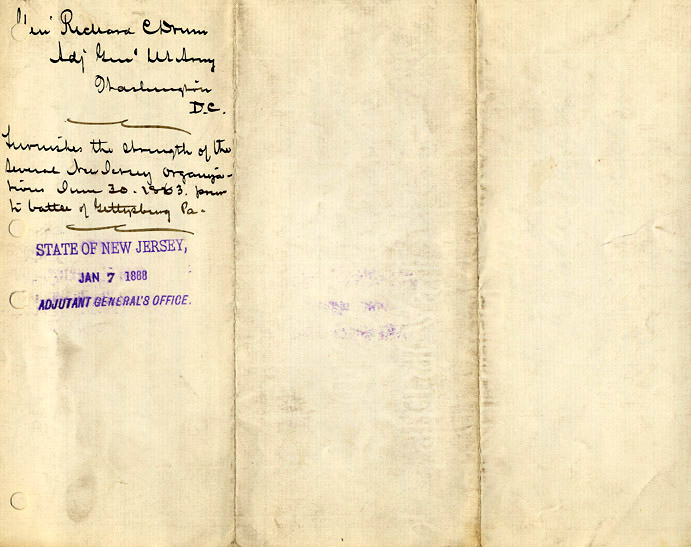 Gen Richard C Drum
Adj Genl US Army
Washington
D.C.
Furnishes the strength of the
several New Jersey organiza-
tions June 30. 1863. prior
to battle of Gettysburg Pa.
STATE OF NEW JERSEY,
JAN 7 1888
ADJUTANT GENERAL'S OFFICE.